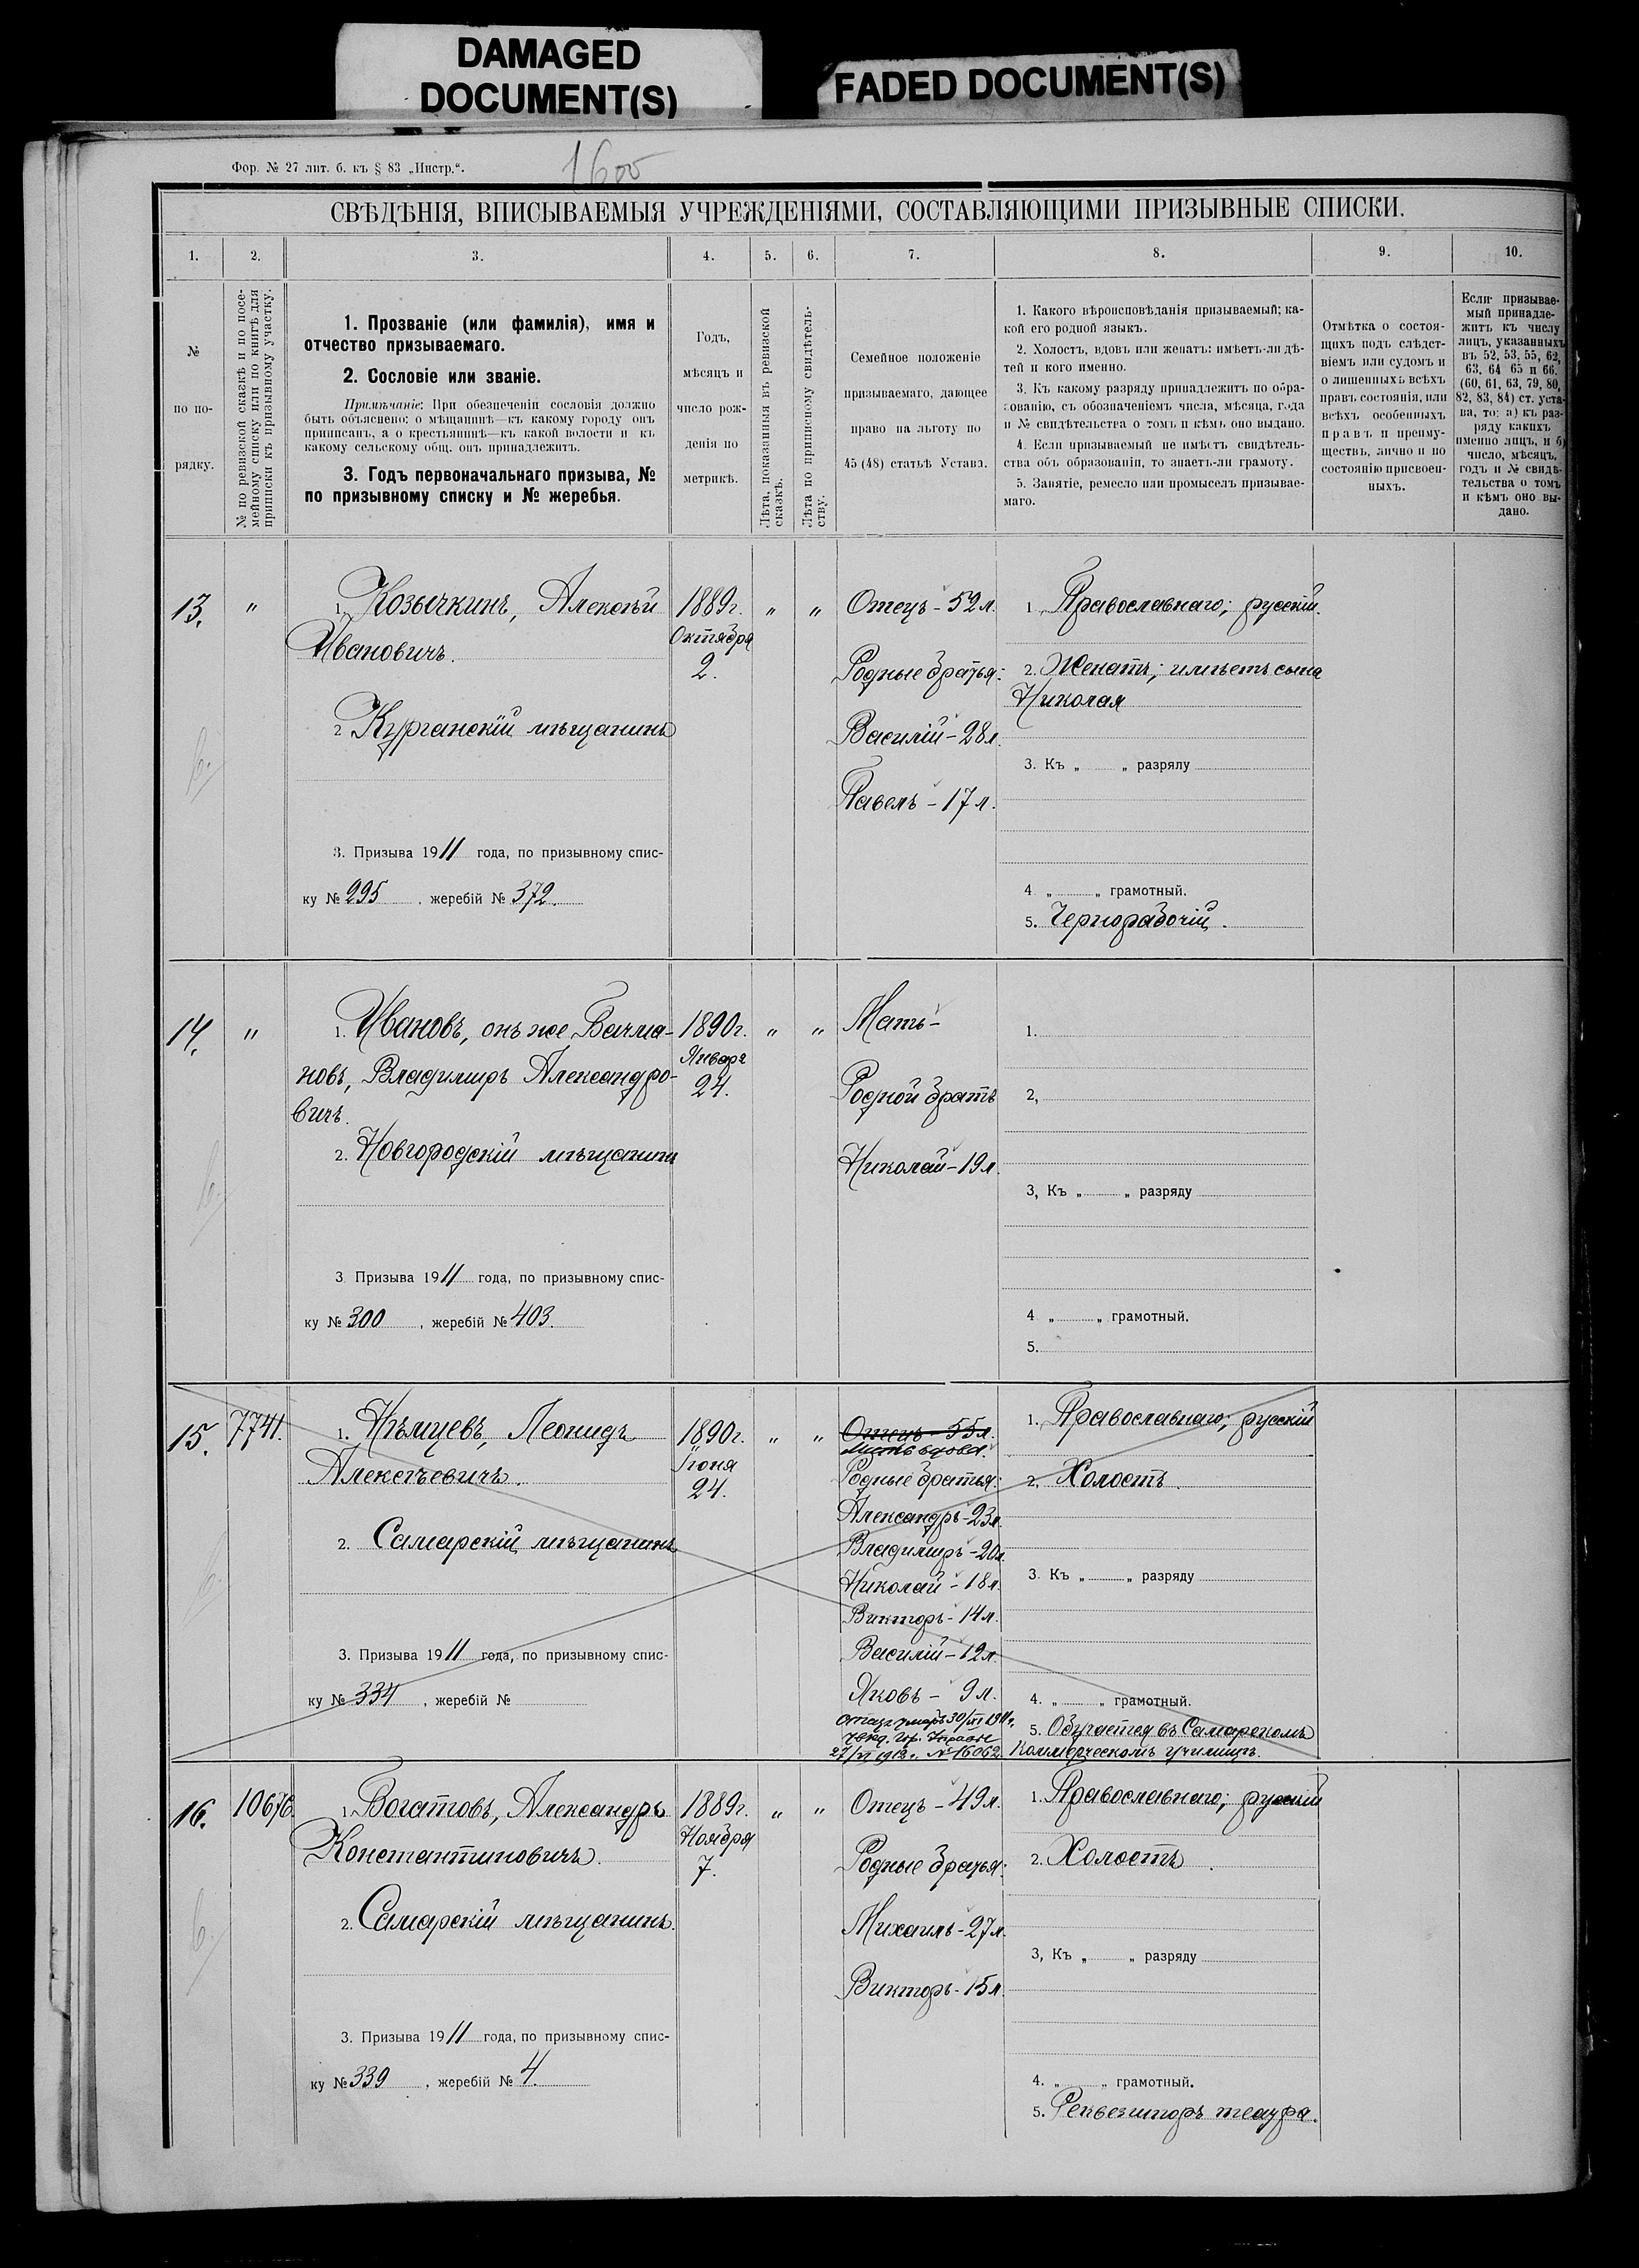 DAMAGED
DOCUMENT(S)
FADED DOCUMENT(S)
Фор. № 27 лит. б. къ § 83 „Инстр.“.
1600
СВѢДѢНІЯ, ВПИСЫВАЕМЫЯ УЧРЕЖДЕНІЯМИ, СОСТАВЛЯЮЩИМИ ПРИЗЫВНЫЕ СПИСКИ.
1. 2. 3. 4. 5. 6. 7. 8. 9. 10.
№
по по-
рядку.
№ по ревизской сказкѣ и по посе-
мейному списку или по книгѣ для
приписки къ призывному участку.
1. Прозваніе (или фамилія), имя и
отчество призываемаго.
2. Сословіе или званіе.
Примѣчаніе: При обезпеченіи сословія должно
быть объяснено: о мѣщанинѣ—къ какому городу онъ
приписанъ, а о крестьянинѣ—къ какой волости и къ
какому сельскому общ. онъ принадлежитъ.
3. Годъ первоначальнаго призыва, №
по призывному списку и № жеребья.
Годъ,
мѣсяцъ и
число рож-
денія по
метрикѣ.
Лѣта, показанныя въ ревизской
сказкѣ.
Лѣта по приписному свидѣтель-
ству.
Семейное положеніе
призываемаго, дающее
право на льготу по
45 (48) статьѣ Устава.
1. Какого вѣроисповѣданія призываемый; ка-
кой его родной языкъ.
2. Холостъ, вдовъ или женатъ: имѣетъ-ли дѣ-
тей и кого именно.
3. Къ какому разряду принадлежитъ по обра-
зованію, съ обозначеніемъ числа, мѣсяца, года
и № свидѣтельства о томъ и кѣмъ оно выдано.
4. Если призываемый не имѣетъ свидѣтель-
ства объ образованіи, то знаетъ-ли грамоту.
5. Занятіе, ремесло или промыселъ призывае-
маго.
Отмѣтка о состоя-
щихъ подъ слѣдст-
віемъ или судомъ и
о лишенныхъ всѣхъ
правъ состоянія, или
всѣхъ особенныхъ
правъ и преиму-
ществъ, лично и по
состоянію присвоен-
ныхъ.
Если призывае-
мый принадле-
житъ къ числу
лицъ, указанныхъ
въ 52, 53, 55, 62,
63, 64 65 и 66.
(60, 61, 63, 79, 80,
82, 83, 84) ст. уста-
ва, то: а) къ раз-
ряду какихъ
именно лицъ, и б)
число, мѣсяцъ,
годъ и № свидѣ-
тельства о томъ
и кѣмъ оно вы-
дано.
13.
"
1. Козычкинъ, Алексѣй
Ивановичъ.
2 Курганскій мѣщанинъ
3. Призыва 1911 года, по призывному спис-
ку № 295, жеребій № 372.
1889г.
Октября
2.
" "
Отецъ - 52 л.
Родные братья:
Василій - 28 л.
Павелъ - 17 л.
1 Православнаго; русскій.
2. Женатъ; имѣетъ сына
Николая
3. Къ „ „ разряду
4 „ „ грамотный.
5. Чернорабочій.
14.
"
1. Ивановъ, онъ же Бачма-
новъ, Владимиръ Александро-
вичъ.
2. Новгородскій мѣщанинъ
3 Призыва 1911 года, по призывному спис-
ку № 300, жеребій № 403.
1890г.
Января
24.
" "
Мать -
Родной братъ
Николай - 19 л.
1.
2,
3, Къ „ „ разряду
4 „ „ грамотный.
5.
15.
7741.
1. Нѣмцевъ, Леонидъ
Алексѣевичъ.
2. Самарскій мѣщанинъ
3. Призыва 1911 года, по призывному спис-
ку № 334, жеребій №
1890г.
Іюня
24.
" "
Отецъ - 55 л.
Мать вдова.
Родные братья:
Александръ - 23 л.
Владимиръ - 20 л.
Николай - 18 л.
Викторъ - 14 л.
Василій - 12 л.
Яковъ - 9 л.
Отецъ умеръ 30/
№ 16062
1. Православнаго; русскій
2. Холостъ.
3. Къ „ „ разряду
4. „ „ грамотный.
5. Обучается въ Самарскомъ
Коммерческомъ училищѣ.
16.
10676.
1. Богатовъ, Александръ
Константиновичъ.
2. Самарскій мѣщанинъ.
3. Призыва 1911 года, по призывному спис-
ку № 339, жеребій № 4.
1889г.
Ноября
7.
" "
Отецъ - 49 л.
Родные братья:
Михаилъ - 27 л.
Викторъ - 15 л.
1. Православнаго; русскій
2. Холостъ.
3, Къ „ „ разряду
4. „ „ грамотный.
5. Реквезиторъ театра.